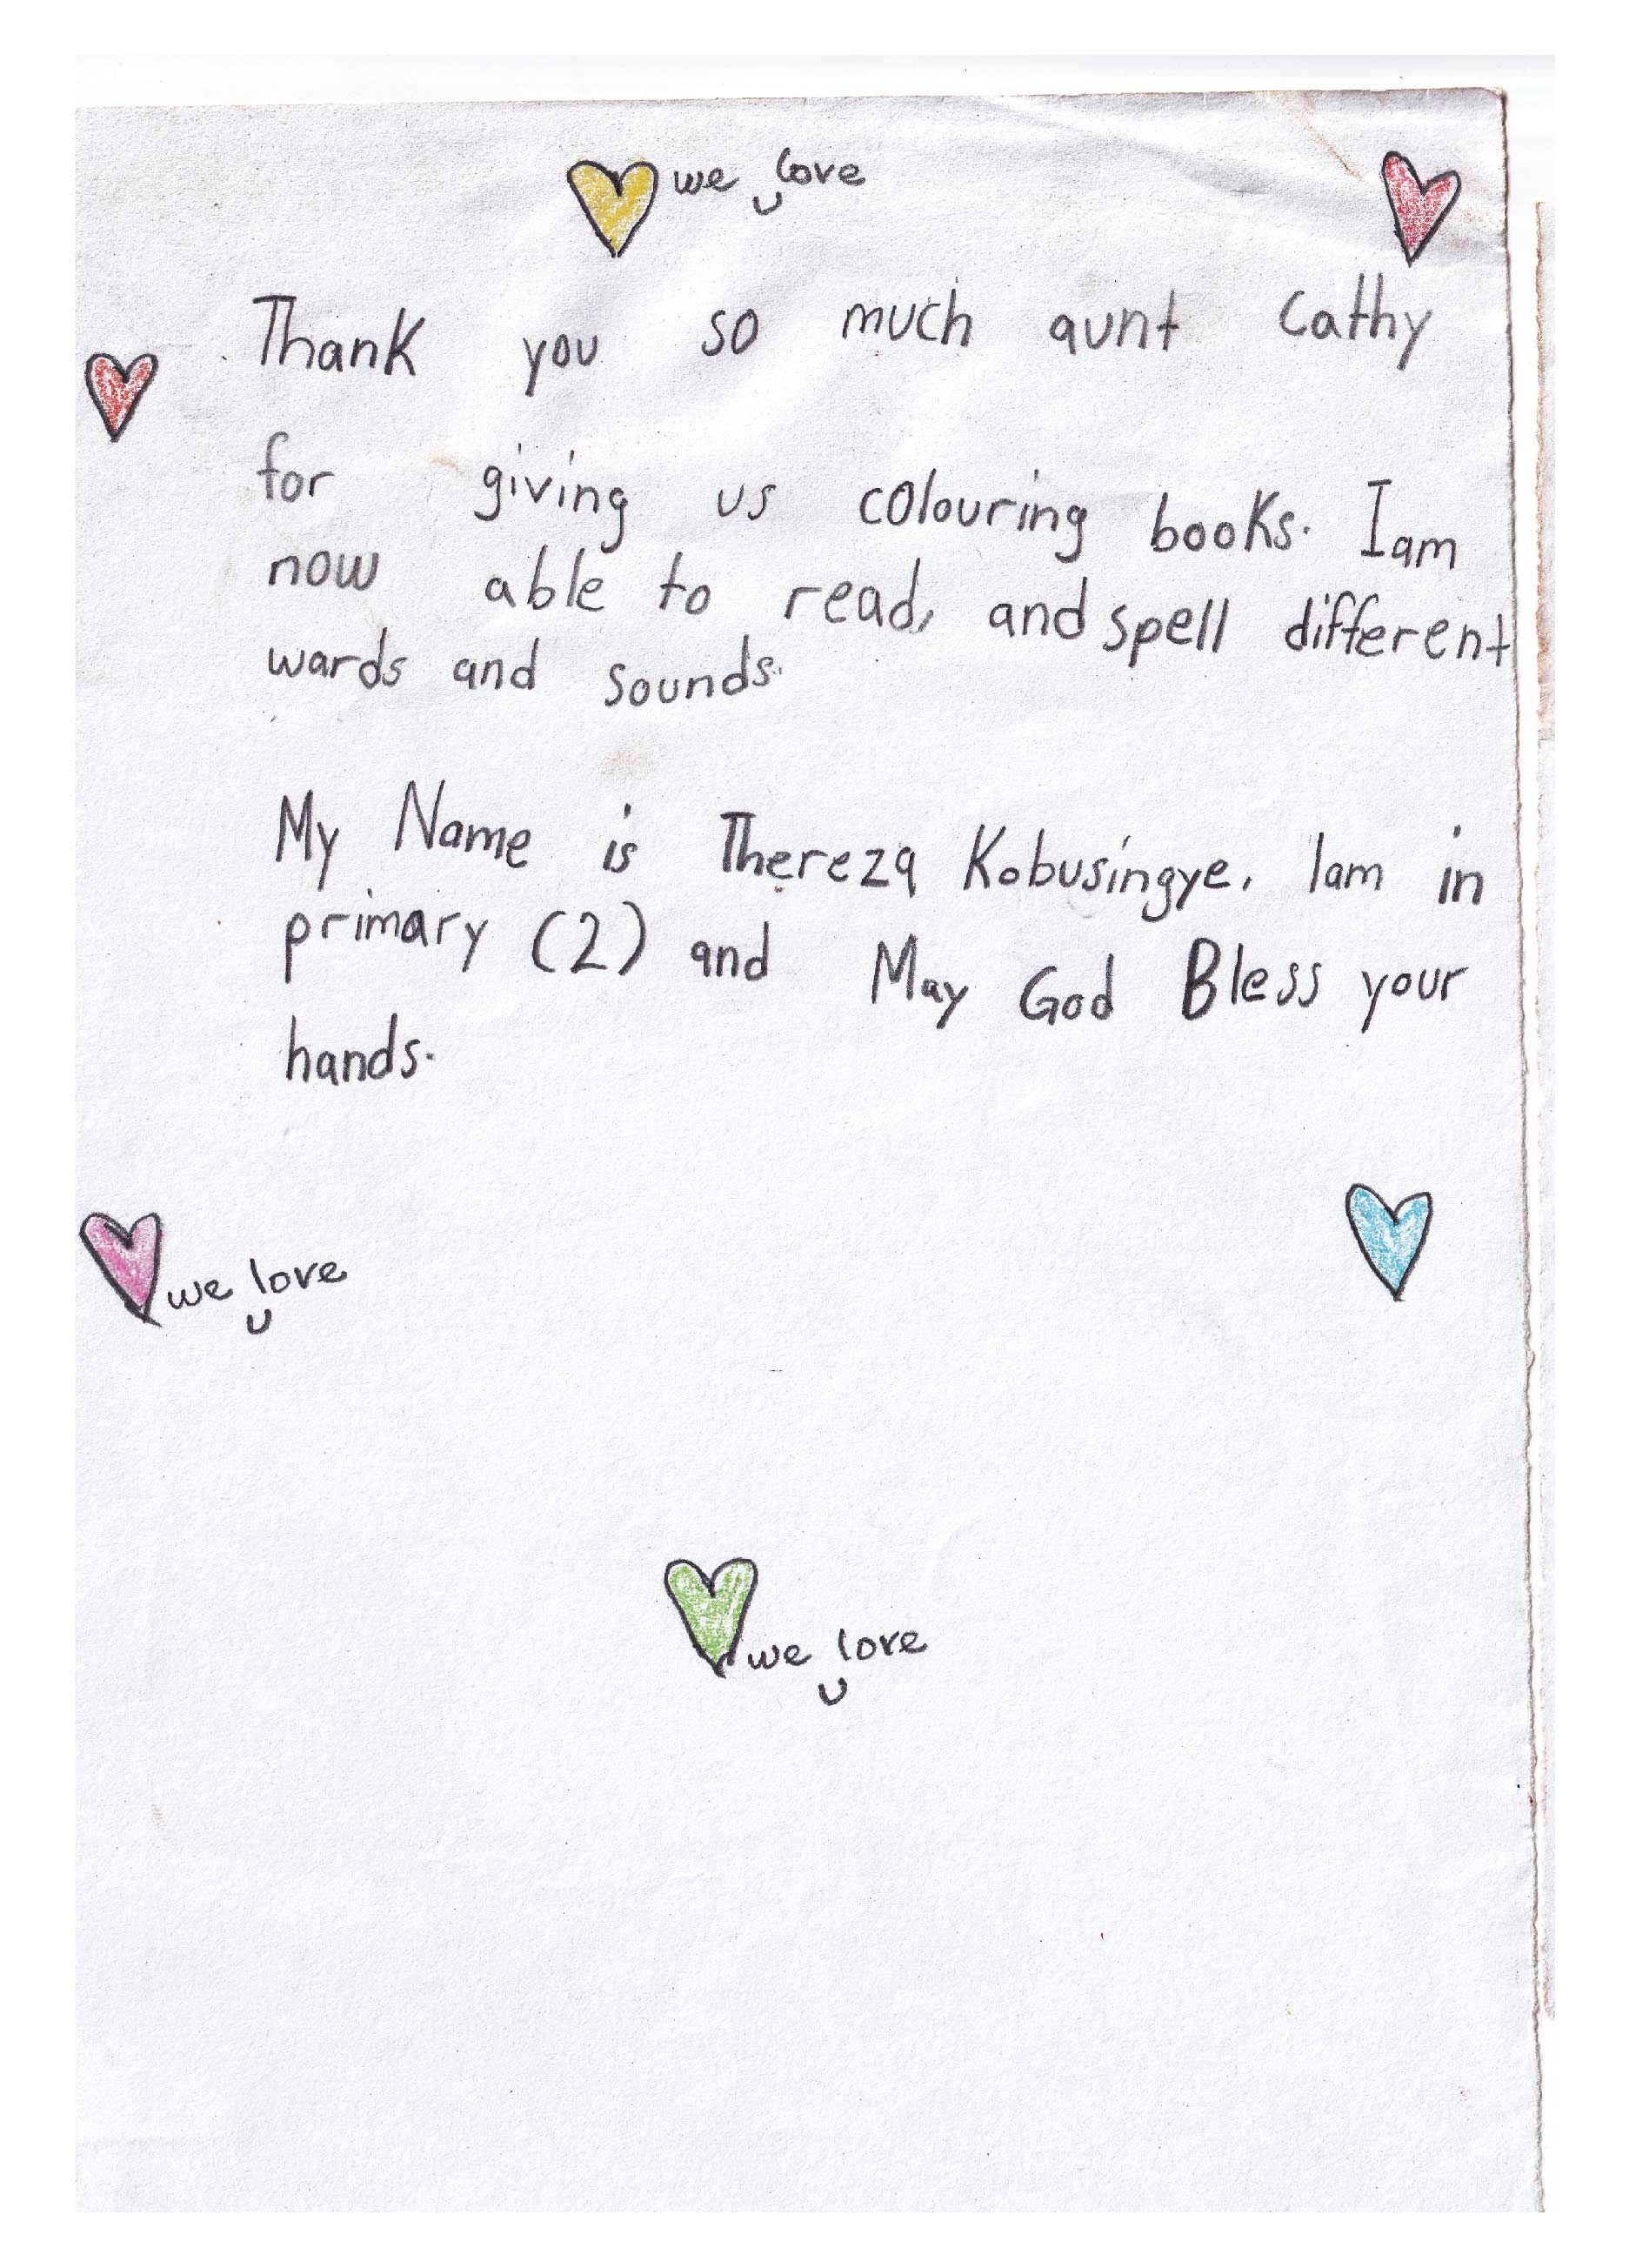 we love
u
Thank you so much aunt Cathy
for giving us colouring books. Iam
now able to read, and spell different
wards and sounds.
My Name is Thereza Kobusingye. Iam in
primary (2) and May God Bless your
hands.
we love
u
we love
u